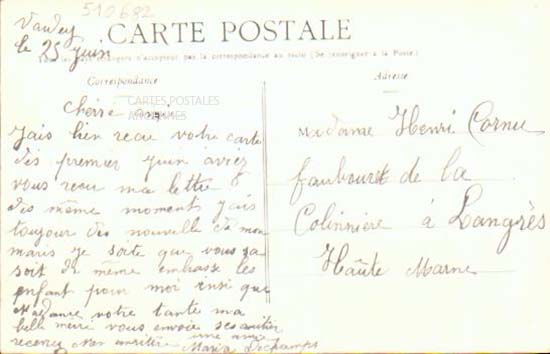 510682
Vandey
le 25 juin
CARTE POSTALE
Tous les pays étrangers n'acceptent pas la correspondance au recto (Se renseigner à la Poste.)
Correspondance
Adresse
CARTES POSTALES
ANCIENNES
Chère
Jais bien recu votre carte
dès premier juin aviez
vous recu ma lettre
dès même moment jais
toujour des nouvelle de mon
maris je soite que vous sa
soit de même embrasse les
enfant pour moi insi que
votre tante ma
belle meire vous envoie ses
recevez mes une amie
Maria Dechamps
Madame Henri Cornu
faubourt de la
Colinnière à Langrès
Haûte Marne